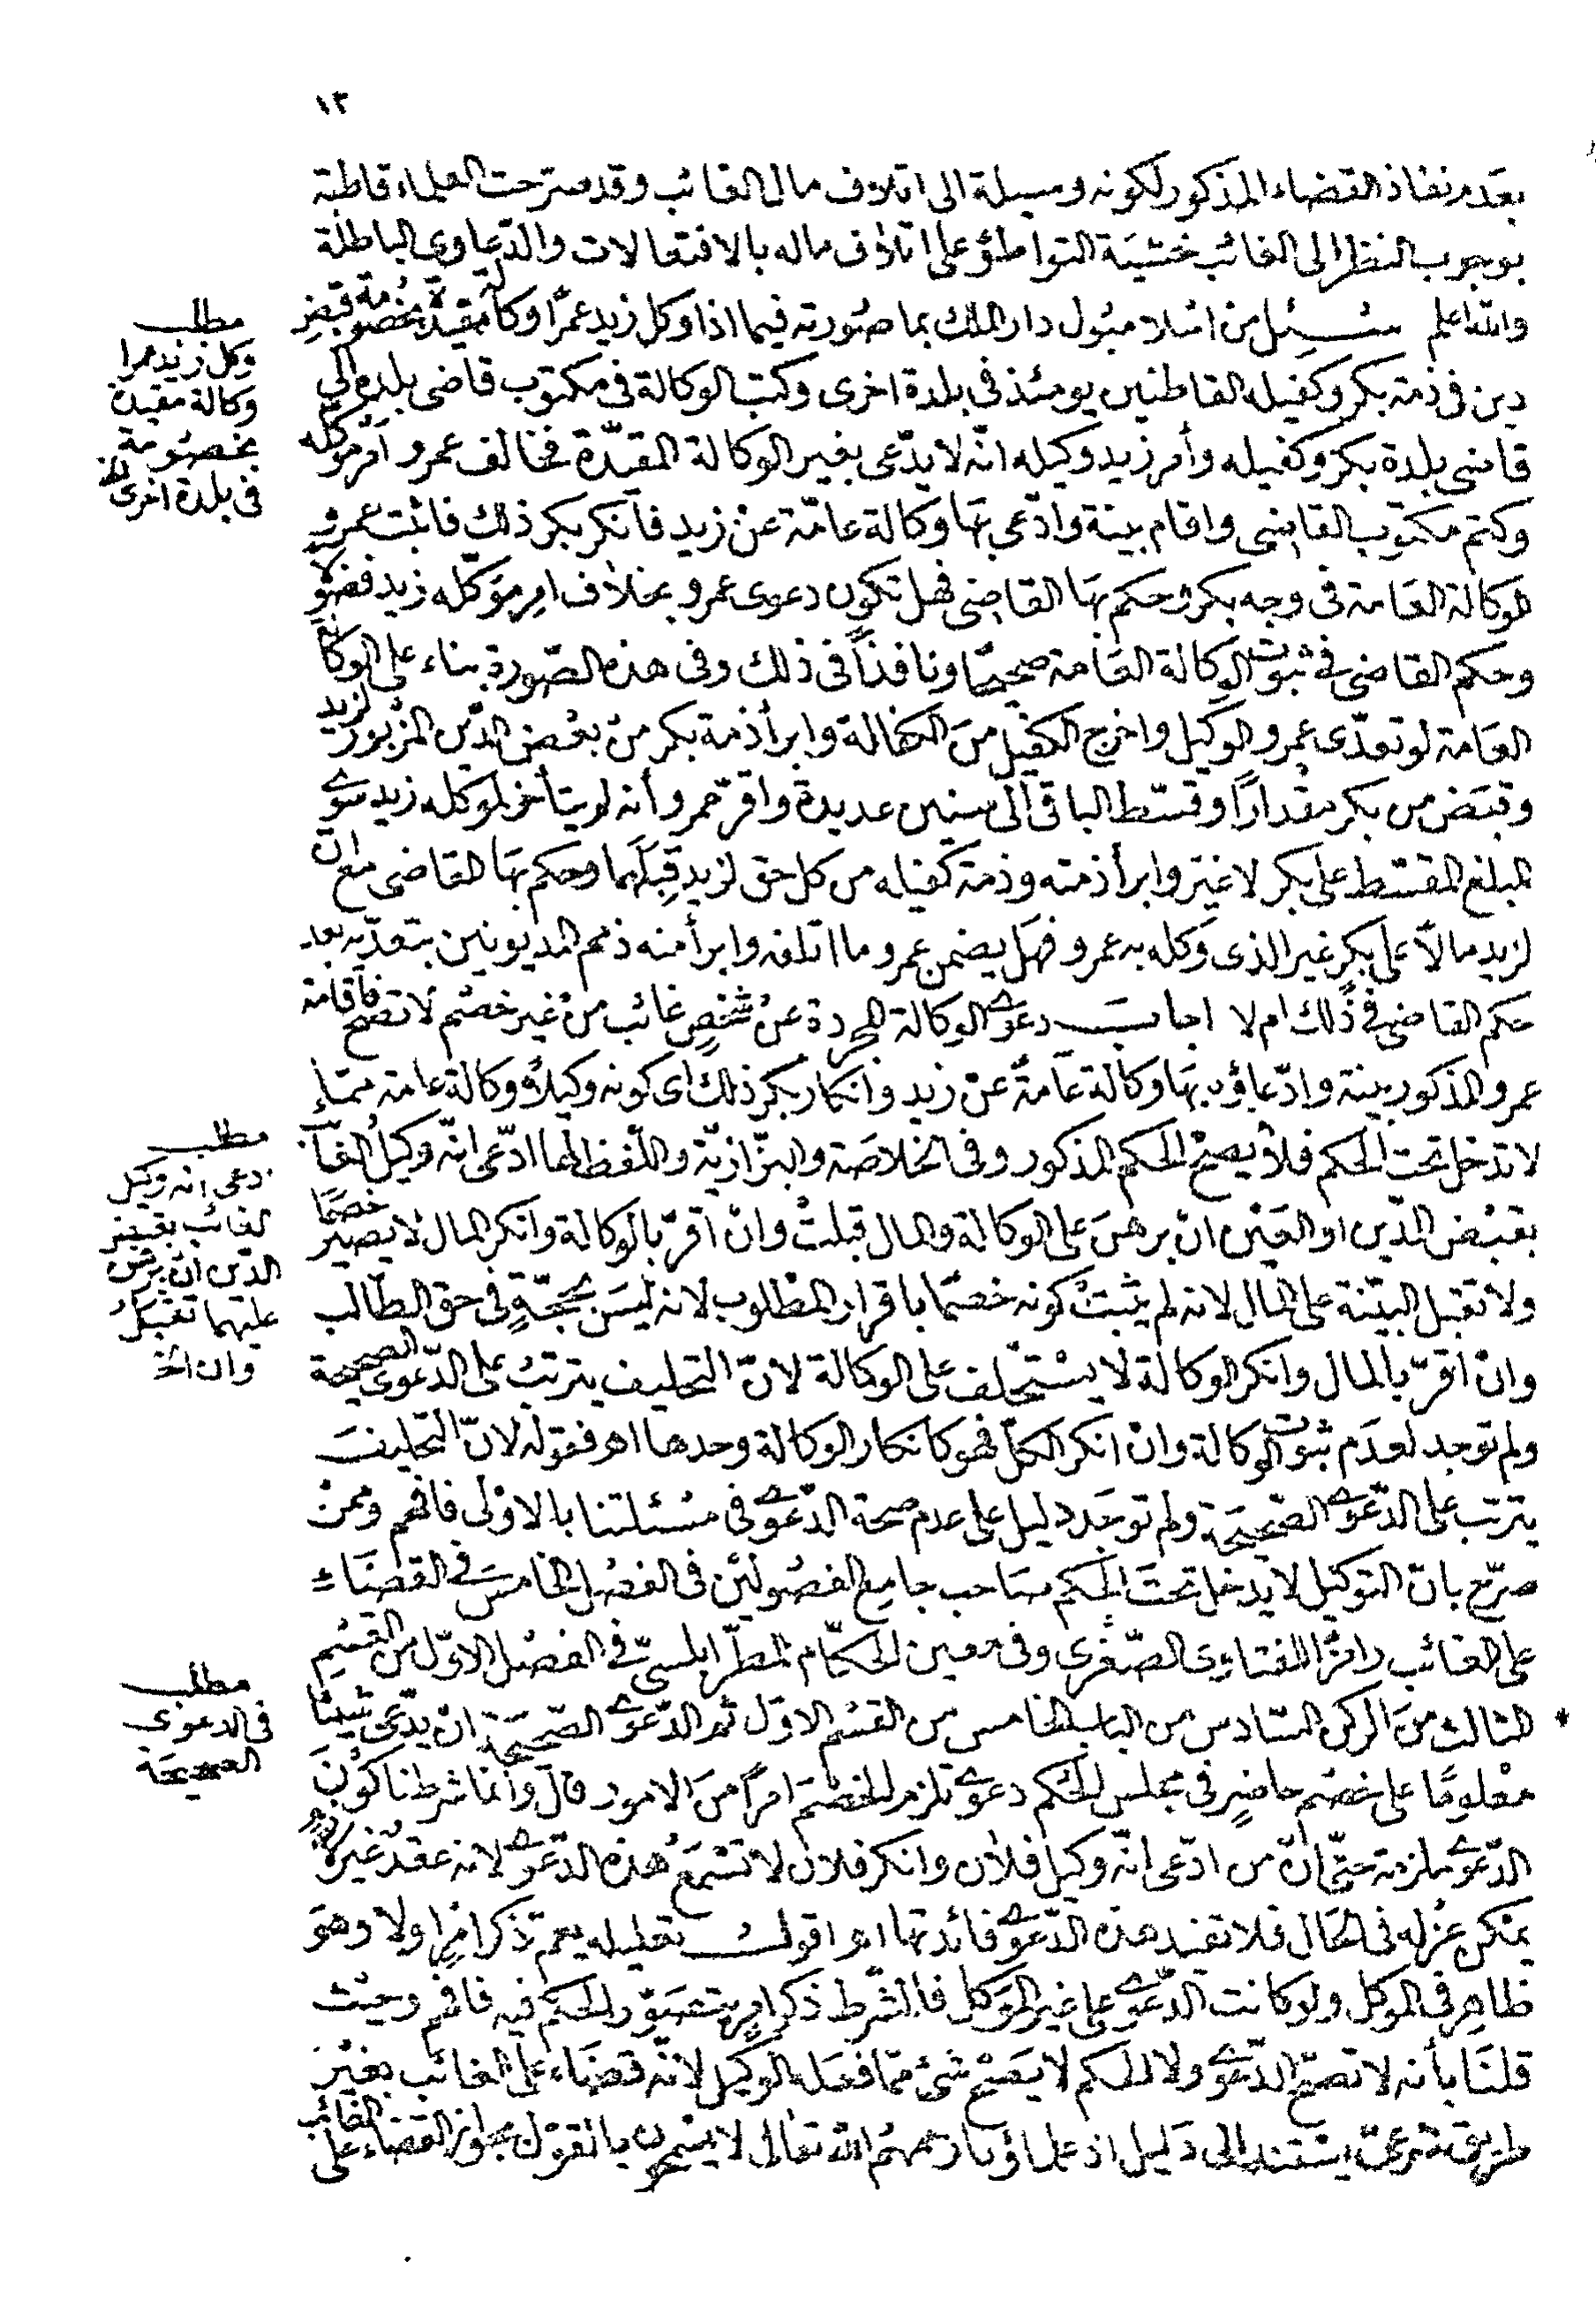 ١٣
بعدم نفاذ القضاء المذكور لكونه وسيلة الى اتلاف مال الغائب وقد صرحت العلماء قاطبة
بوجوب النظر الى الغائب خشية التواطؤ على اتلاف ماله بالافتعالات والدّعاوى الباطلة
والله اعلم سئل من اسلامبول دار الملك بما صورته فيما اذا وكل زيد عمرًا وكالة مقيدة بخصومة قبض
دين فى ذمة بكر وكفيله القاطنين يومئذ فى بلدة اخرى وكتب الوكالة فى مكتوب قاضى بلده الى
قاضى بلدة بكر وكفيله وأمر زيد وكيله انّه لا يدّعى بغير الوكالة المقيّدة فخالف عمرو امر موكله
وكتم مكتوب القاضى واقام بينة وادّعى بها وكالة عامّة عن زيد فأنكر بكر ذلك فاثبت عمرو
الوكالة العامة فى وجه بكر وحكم بها القاضى فهل تكون دعوى عمرو بخلاف امر موكله زيد فضولا
وحكم القاضى فى ثبوت الوكالة العامة صحيحًا ونافذًا فى ذلك وفى هذه الصّورة بناء على الوكالة
العامة لو تعدّى عمرو الوكيل واخرج الكفيل من الكفالة وابرأ ذمة بكر من بعض الدّين المزبور لزيد
وقبض من بكر مقدارًا وقسّط الباقى الى سنين عديدة واقرّ عمرو أنه لم يتأخر لموكله زيد سوى
المبلغ المقسّط على بكر لا غير وابرأ ذمته وذمة كفيله من كل حق لزيد قِبَلَهما وحكم بها القاضى مع ان
لزيد مالاً على بكر غير الذى وكله به عمرو فهل يضمن عمرو ما اتلفه وابرأ منه ذمم المديونين بتعدّيه بعد
حكم القاضى فى ذلك ام لا اجاب دعوى الوكالة المجردة عن شخص غائب من غير خصم لا تصح فاقامة
عمرو المذكور بينة وادّعاؤه بها وكالة عامة عن زيد وانكار بكر ذلك اى كونه وكيلاً وكالة عامة مما
لا تدخل تحت الحكم فلا يصحّ الحكم المذكور وفى الخلاصة والبزّازيّة واللّفظ لها ادّعى انّه وكيل الغائب
بقبض الدّين او العين ان برهن على الوكالة والمال قبلت وان اقرّ بالوكالة وانكر المال لا يصير خصمًا
ولا تقبل البيّنة على المال لانه لم يثبت كونه خصمًا باقرار المطلوب لانه ليس بحجّة فى حق الطّالب
وان اقرّ بالمال وانكر الوكالة لا يستحلف على الوكالة لانّ التحليف يترتب على الدّعوى الصحيحة
ولم توجد لعدم ثبوت الوكالة وان انكر الكلّ فهو كانكار الوكالة وحدها اهـ فقوله لانّ التحليف
يترتب على الدّعوى الصّحيحة ولم توجد دليل على عدم صحة الدّعوى فى مسئلتنا بالاولى فافهم وممن
صرّح بان التوكيل لا يدخل تحت الحكم صاحب جامع الفصولين فى الفصل الخامس فى القضاء
على الغائب رامزًا للفتاوى الصّغرى وفى معين الحكّام للطرابلسىّ فى الفصل الاوّل من القسم
الثالث من الركن السّادس من الباب الخامس من القسم الاول ثم الدّعوى الصّحيحة ان يدّعى شيئًا
معلومًا على خصم حاضر فى مجلس الحكم دعوى تلزم للخصم امرًا من الامور قال وانما شرطنا كون
الدّعوى ملزمة حتى انّ من ادّعى انّه وكيل فلان وانكر فلان لا تسمع هذه الدّعوى لانه عقد غير لازم
يمكن عزله فى الحال فلا تفيد هذه الدّعوى فائدتها اهـ اقول تعليله يعم ذكرا مر اولا وهو
ظاهر فى الموكل ولو كانت الدّعوى على غير الموكل فالشّرط ذكر امر يتصوّر الحكم فيه فافهم وحيث
قلنا بأنه لا تصحّ الدّعوى ولا الحكم لا يصح شئ ممّا فعله الوكيل لانّه قضاء على الغائب بغير
طريق شرعىّ يستند الى دليل اذ علماؤنا رحمهم الله تعالى لا يسمحون بالقول بجواز القضاء على الغائب
مطلب
وكل زيد عمرا
وكالة مقيدة
بخصومة
فى بلدة اخرى الخ
مطلب
ادعى انه وكيل
الغائب بقبض
الدّين ان برهن
عليهما تقبل
وان الخ
مطلب
فى الدعوى
الصحيحة